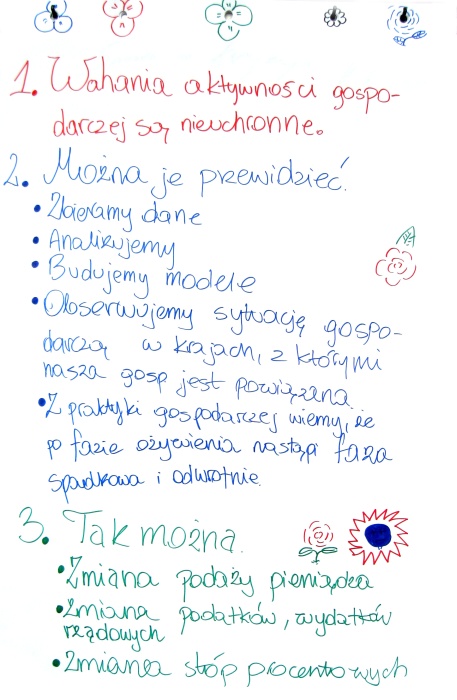 1. Wahania aktywności gospo-
darczej są nieuchronne.
2. Można je przewidzieć.
• Zbieramy dane
• Analizujemy
• Budujemy modele
• Obserwujemy sytuację gospo-
darczą w krajach, z którymi
nasza gosp jest powiązana
• Z praktyki gospodarczej wiemy, że
po fazie ożywienia nastąpi faza
spadkowa i odwrotnie.
3. Tak można.
• Zmiana podaży pieniądza
• Zmiana podatków, wydatków
rządowych
• Zmiana stóp procentowych